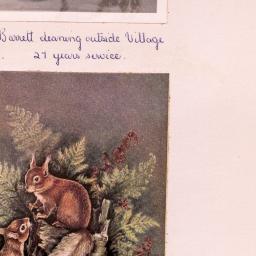 Barrett cleaning outside Village
27 years service.